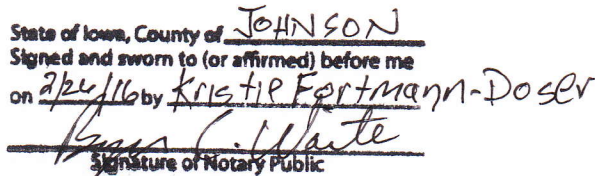 State of Iowa, County of JOHNSON
Signed and sworn to (or affirmed) before me
on 2/26/16 by Kristie Fortmann-Doser
C. Waite
Signature of Notary Public